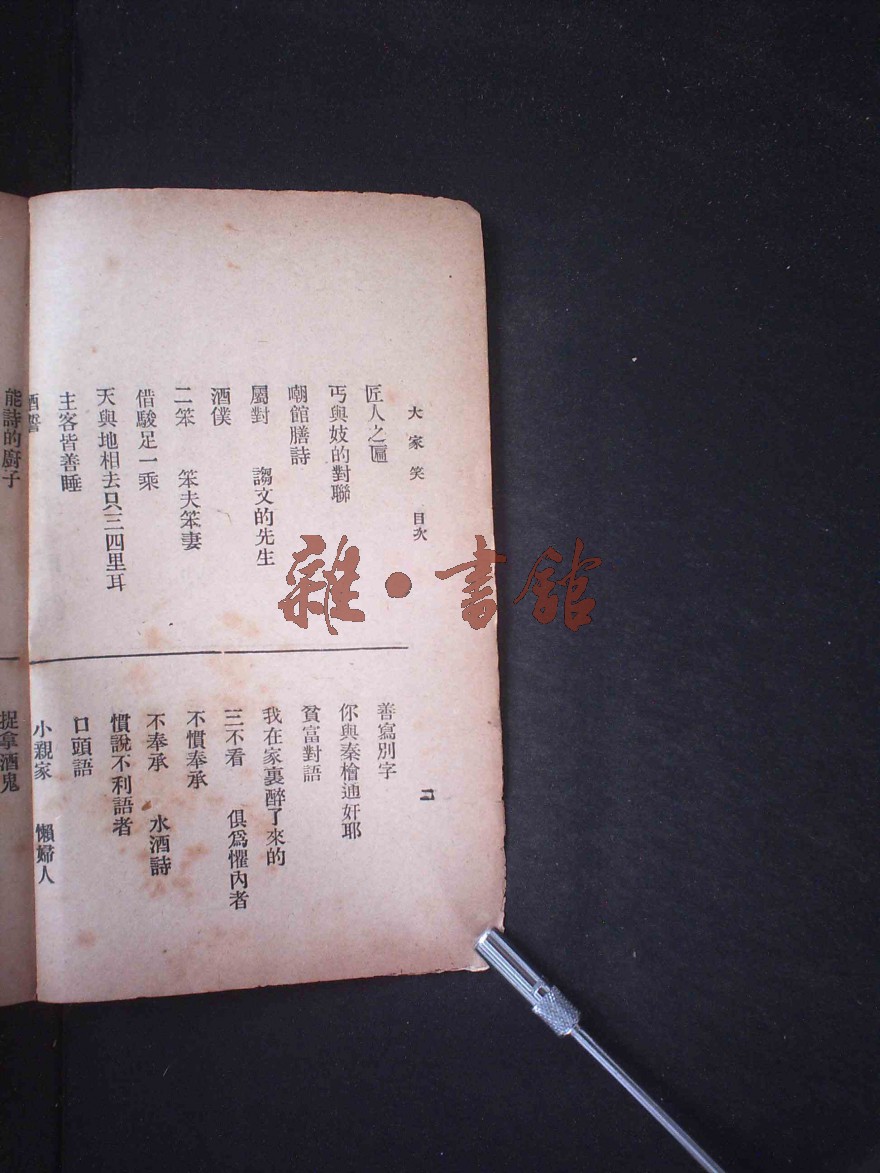 大家笑 目次
二
匠人之匾
丐與妓的對聯
嘲館膳詩
屬對 謅文的先生
酒僕
二笨 笨夫笨妻
借駿足一乘
天與地相去只三四里耳
主客皆善睡
酒誓
能詩的廚子
善寫別字
你與秦檜通奸耶
貧富對語
我在家裏醉了來的
三不看 俱爲懼內者
不慣奉承
不奉承 水酒詩
慣說不利語者
口頭語
小親家 懶婦人
捉拿酒鬼
雜·書館